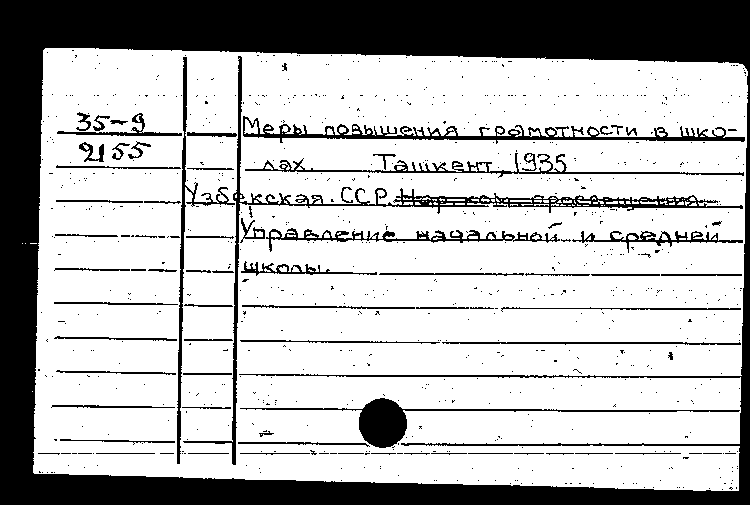 35-9 Меры повышения грамотности в шко-
2155 лах. Ташкент, 1935
Узбекская ССР. Нар. ком. просвещения.
Управление начальной и средней
школы.